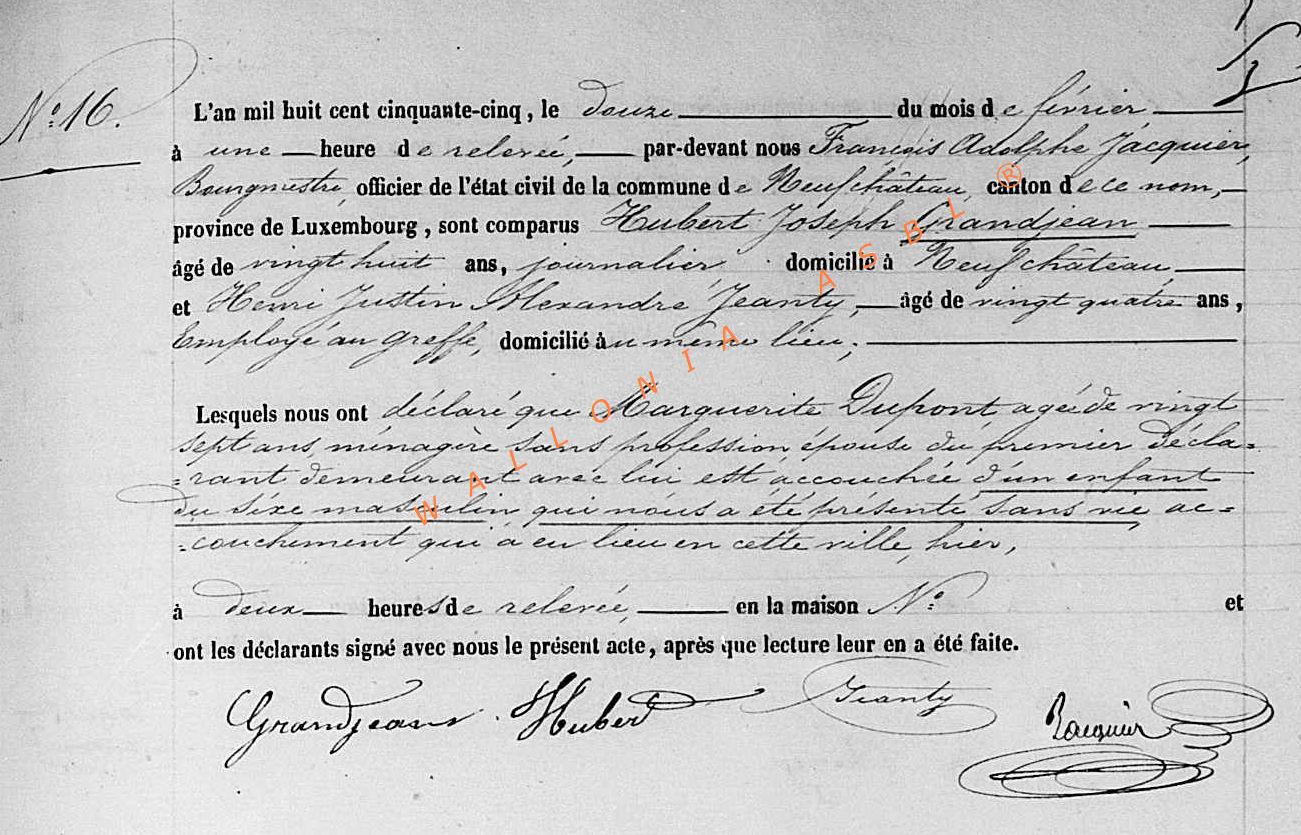 N.° 16.
L'an mil huit cent cinquante-cinq, le douze du mois de février
à une heure de relevée, par-devant nous François Adolphe Jacquier,
Bourgmestre, officier de l'état civil de la commune de Neufchâteau, canton de ce nom,
province de Luxembourg, sont comparus Hubert Joseph Grandjean
âgé de vingt huit ans, journalier domicilié à Neufchâteau,
et Henri Justin Alexandre Jeanty, âgé de vingt quatre ans,
Employé au Greffe, domicilié au même lieu;
Lesquels nous ont déclaré que Marguerite Dupont agée de vingt
sept ans, ménagère sans profession épouse du premier décla=
=rant demeurant avec lui est accouchée d'un enfant
du séxe masculin qui nous a été présenté sans vie, ac=
=couchement qui a eu lieu en cette ville, hier,
à deux heures de relevée, en la maison N.° et
ont les déclarants signé avec nous le présent acte, après que lecture leur en a été faite.
Grandjean Hubert Jeanty Jacquier
WALLONIA ASBL ®